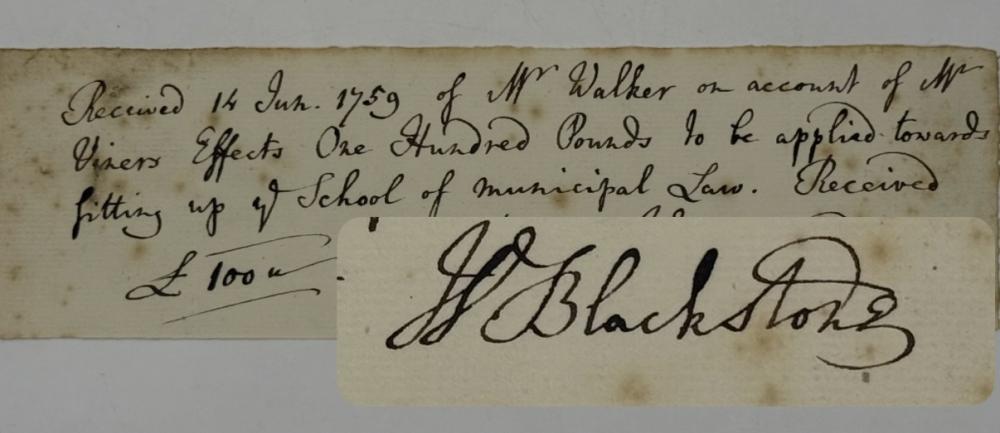 Received 14 Jun. 1759 of Mr Walker on account of Mr
Viners Effects One Hundred Pounds to be applied towards
fitting up ye School of municipal Law. Received
£ 100 "
Wm Blackstone